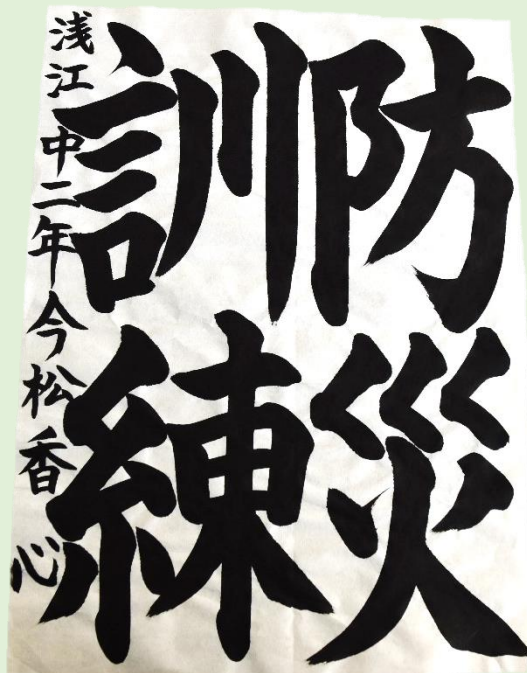 防災
訓練
浅江中二年今松香心